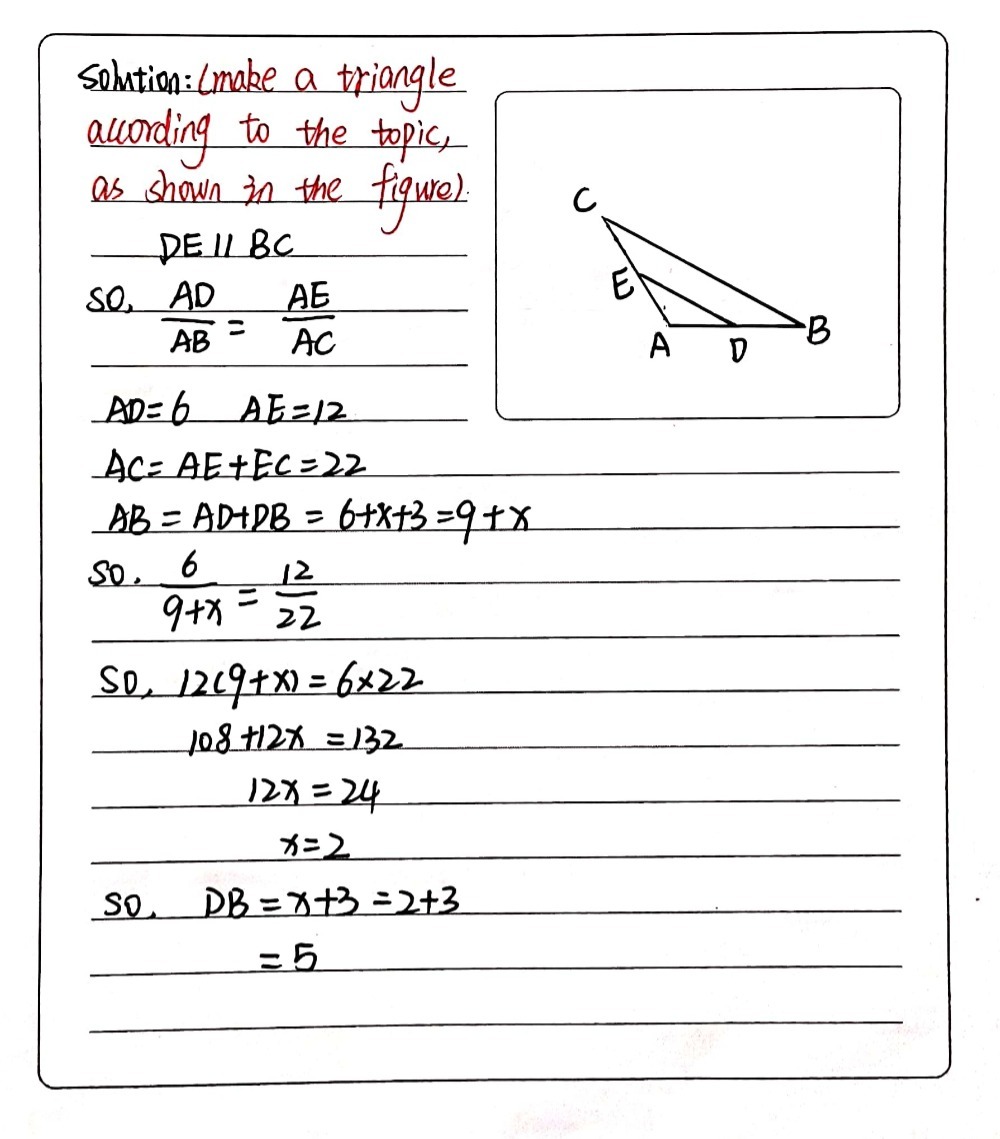 Solution: (make a triangle
according to the topic,
as shown in the figure).
DE // BC
SO, AD/AB = AE/AC
AD=6 AE=12
AC= AE+EC=22
AB = AD+DB = 6+x+3=9+x
SO. 6/(9+x) = 12/22
SO, 12(9+x) = 6×22
108+12x = 132
12x = 24
x=2
SO. DB = x+3 =2+3
= 5
C
E
A D B